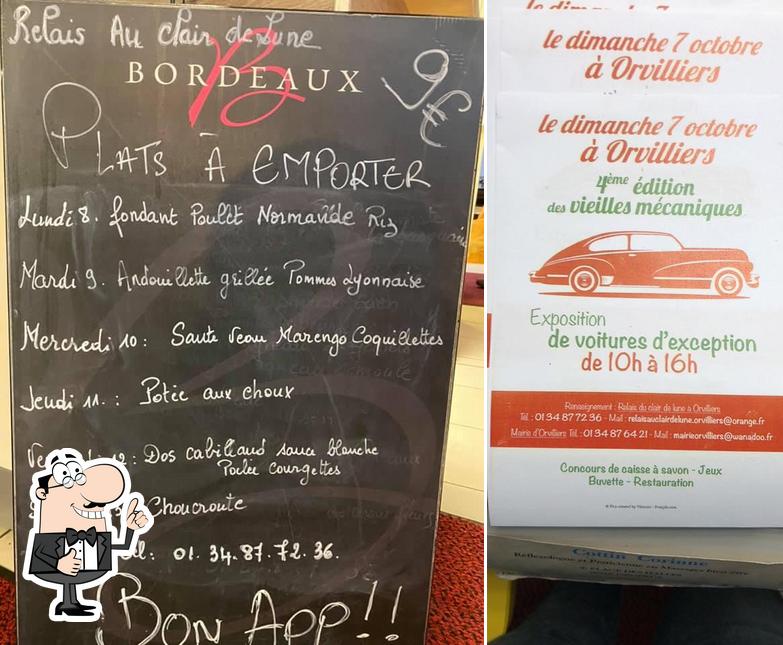 Relais Au Clair de Lune
BORDEAUX
9€
PLATS À EMPORTER
Lundi 8. fondant Poulet Normande Riz
Mardi 9. Andouillette grillée Pommes Lyonnaise
Mercredi 10 : Sauté Veau Marengo Coquillettes
Jeudi 11. : Potée aux choux
12 : Dos cabillaud sauce blanche
Poêlée courgettes
Choucroute
01. 34. 87. 72. 36.
BON APP!!
le dimanche 7
le dimanche 7 octobre
à Orvilliers
le dimanche 7 octobre
à Orvilliers
4ème édition
des vieilles mécaniques
Exposition
de voitures d'exception
de 10h à 16h
Renseignement : Relais du clair de lune à Orvilliers
Tél. : 01 34 87 72 36 - Mail : relaisauclairdelune.orvilliers@orange.fr
Mairie d'Orvilliers Tél. : 01 34 87 64 21 - Mail : mairieorvilliers@wanadoo.fr
Concours de caisse à savon - Jeux
Buvette - Restauration
Cottin Corinne